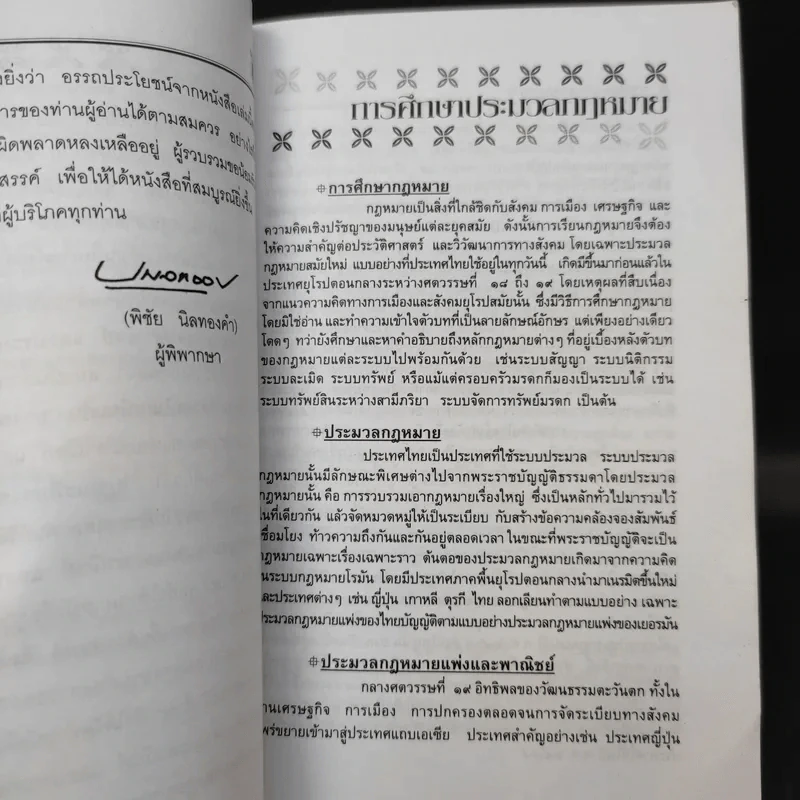 ยิ่งว่า อรรถประโยชน์จากหนังสือเล่มนี้
ารของท่านผู้อ่านได้ตามสมควร
ผิดพลาดหลงเหลืออยู่ ผู้รวบรวมขอน้อม
สรรค์ เพื่อให้ได้หนังสือที่สมบูรณ์ยิ่งขึ้น
ผู้บริโภคทุกท่าน
(พิชัย นิลทองคำ)
ผู้พิพากษา
การศึกษาประมวลกฎหมาย
การศึกษากฎหมาย
กฎหมายเป็นสิ่งที่ใกล้ชิดกับสังคม การเมือง เศรษฐกิจ และ
ความคิดเชิงปรัชญาของมนุษย์แต่ละยุคสมัย ดังนั้นการเรียนกฎหมายจึงต้อง
ให้ความสำคัญต่อประวัติศาสตร์ และวิวัฒนาการทางสังคม โดยเฉพาะประมวล
กฎหมายสมัยใหม่ แบบอย่างที่ประเทศไทยใช้อยู่ในทุกวันนี้ เกิดมีขึ้นมาก่อนแล้วใน
ประเทศยุโรปตอนกลางระหว่างศตวรรษที่ ๑๘ ถึง ๑๙ โดยเหตุผลที่สืบเนื่อง
จากแนวความคิดทางการเมืองและสังคมยุโรปสมัยนั้น ซึ่งมีวิธีการศึกษากฎหมาย
โดยมิใช่อ่าน และทำความเข้าใจตัวบทที่เป็นลายลักษณ์อักษร แต่เพียงอย่างเดียว
โดดๆ ทว่ายังศึกษาและหาคำอธิบายถึงหลักกฎหมายต่างๆ ที่อยู่เบื้องหลังตัวบท
ของกฎหมายแต่ละระบบไปพร้อมกันด้วย เช่นระบบสัญญา ระบบนิติกรรม
ระบบละเมิด ระบบทรัพย์ หรือแม้แต่ครอบครัวมรดกก็มองเป็นระบบได้ เช่น
ระบบทรัพย์สินระหว่างสามีภริยา ระบบจัดการทรัพย์มรดก เป็นต้น
ประมวลกฎหมาย
ประเทศไทยเป็นประเทศที่ใช้ระบบประมวล ระบบประมวล
กฎหมายนั้นมีลักษณะพิเศษต่างไปจากพระราชบัญญัติธรรมดาโดยประมวล
กฎหมายนั้น คือ การรวบรวมเอากฎหมายเรื่องใหญ่ ซึ่งเป็นหลักทั่วไปมารวมไว้
ในที่เดียวกัน แล้วจัดหมวดหมู่ให้เป็นระเบียบ กับสร้างข้อความคล้องจองสัมพันธ์
ชื่อมโยง ท้าวความถึงกันและกันอยู่ตลอดเวลา ในขณะที่พระราชบัญญัติจะเป็น
กฎหมายเฉพาะเรื่องเฉพาะราว ต้นตอของประมวลกฎหมายเกิดมาจากความคิด
นระบบกฎหมายโรมัน โดยมีประเทศภาคพื้นยุโรปตอนกลางนำมาเนรมิตขึ้นใหม่
และประเทศต่างๆ เช่น ญี่ปุ่น เกาหลี ตุรกี ไทย ลอกเลียนทำตามแบบอย่าง เฉพาะ
ประมวลกฎหมายแพ่งของไทยบัญญัติตามแบบอย่างประมวลกฎหมายแพ่งของเยอรมัน
ประมวลกฎหมายแพ่งและพาณิชย์
กลางศตวรรษที่ ๑๙ อิทธิพลของวัฒนธรรมตะวันตก ทั้งใน
านเศรษฐกิจ การเมือง การปกครองตลอดจนการจัดระเบียบทางสังคม
พร่ขยายเข้ามาสู่ประเทศแถบเอเซีย ประเทศสำคัญอย่างเช่น ประเทศญี่ปุ่น